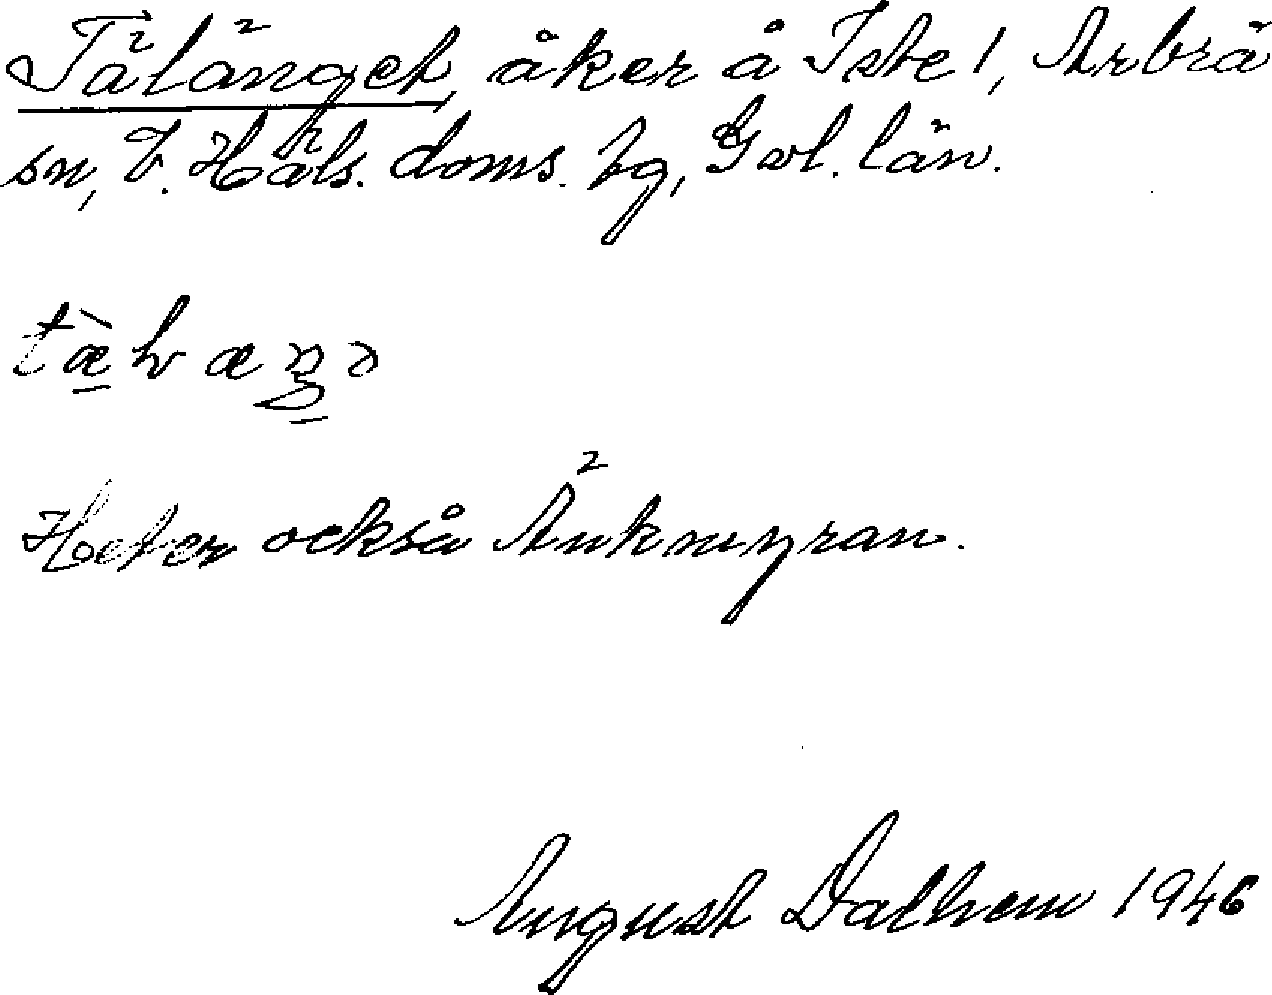 Tälänget, åker å Iste 1, Arbrå
sn, V. Häls. doms. hg, Gvl. län.
Heter också Änkmyran.
August Dalhem 1946